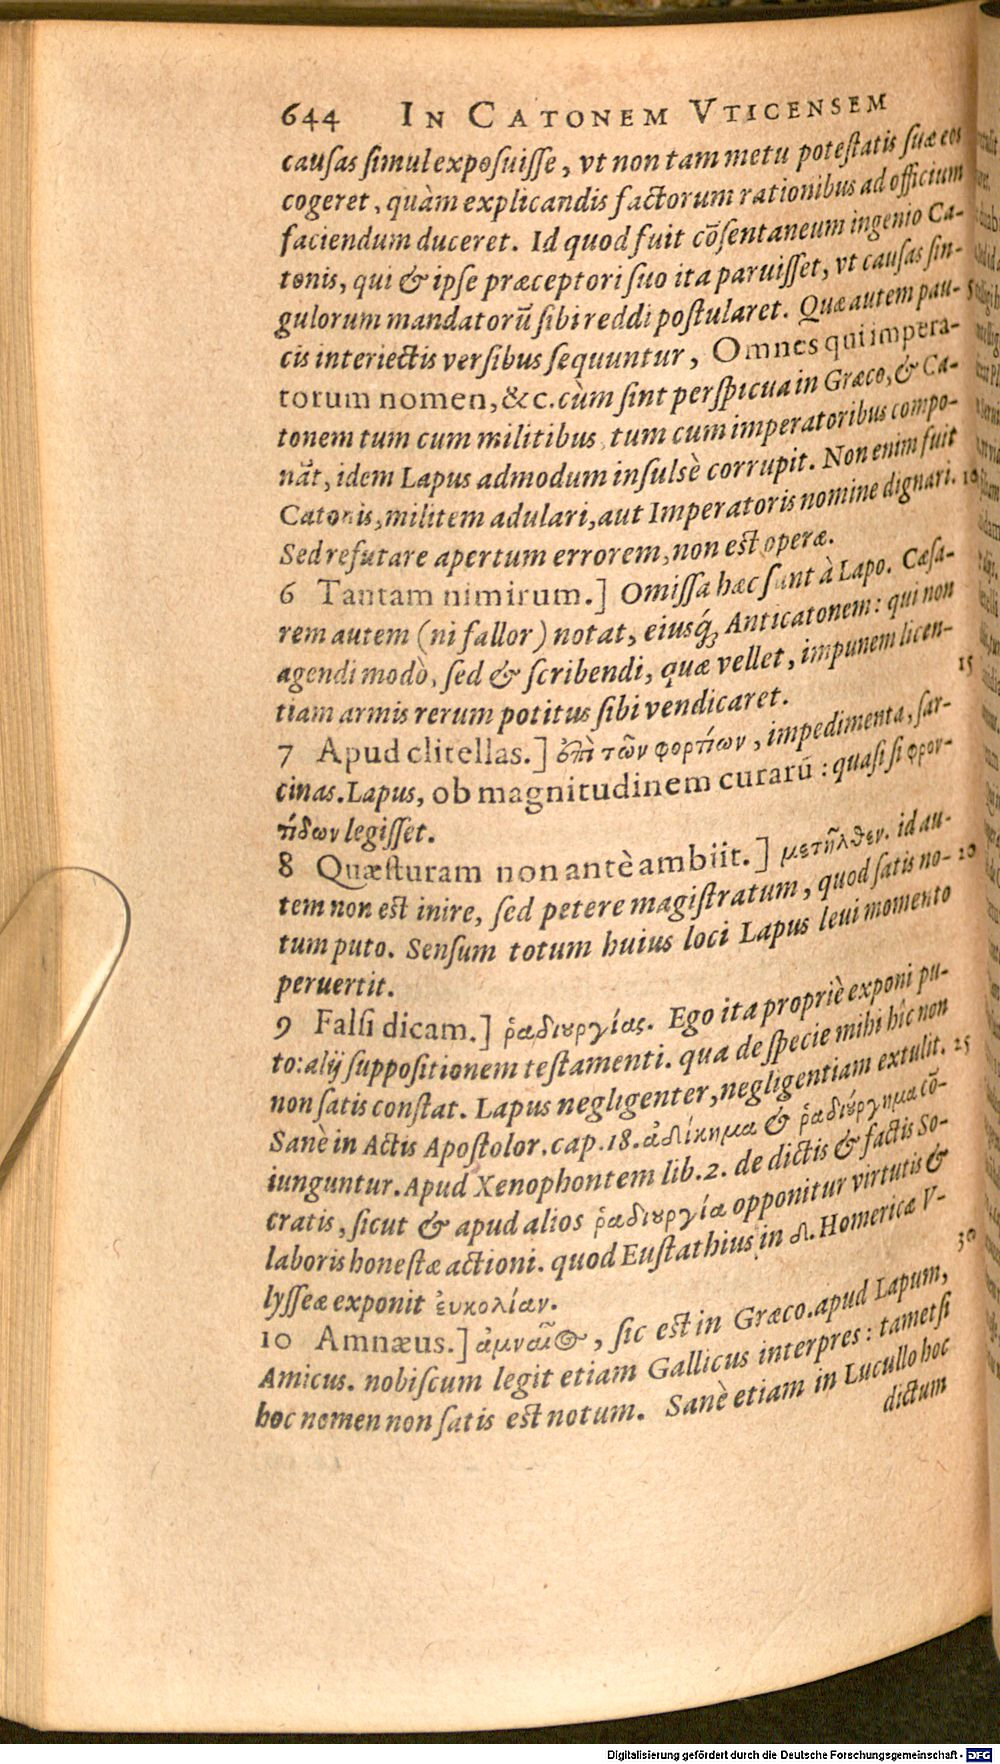 644 IN CATONEM VTICENSEM
cauſas ſimul expoſuiſſe, vt non tam metu poteſtatis ſuæ eos
cogeret, quàm explicandis factorum rationibus ad officium
faciendum duceret. Id quod fuit cõſentaneum ingenio Ca-
tonis, qui & ipſe præceptori ſuo ita paruiſſet, vt cauſas ſin-
gulorum mandatorũ ſibi reddi poſtularet. Quæ autem pau- 5
cis interiectis verſibus ſequuntur, Omnes qui impera-
torum nomen, &c. cùm ſint perſpicua in Græco, & Ca-
tonem tum cum militibus, tum cum imperatoribus compo-
nãt, idem Lapus admodum inſulsè corrupit. Non enim fuit
Catonis, militem adulari, aut Imperatoris nomine dignari. 10
Sed refutare apertum errorem, non eſt operæ.
6 Tantam nimirum.] Omiſſa hæc ſunt à Lapo. Cæſa-
rem autem (ni fallor) notat, eiusq́; Anticatonem: qui non
agendi modò, ſed & ſcribendi, quæ vellet, impunem licen-
tiam armis rerum potitus ſibi vendicaret. 15
7 Apud clitellas.] ἐπὶ τῶν φορτίων, impedimenta, ſar-
cinas. Lapus, ob magnitudinem curarũ: quaſi ſi φρον-
τίδων legiſſet.
8 Quæſturam non antè ambiit.] μετῆλθεν. id au-
tem non eſt inire, ſed petere magiſtratum, quod ſatis no- 20
tum puto. Senſum totum huius loci Lapus leui momento
peruertit.
9 Falſi dicam.] ῥαδιουργίας. Ego ita propriè exponi pu-
to: alij ſuppoſitionem teſtamenti. qua de ſpecie mihi hîc non
non ſatis conſtat. Lapus negligenter, negligentiam extulit. 25
Sanè in Actis Apoſtolor. cap. 18. ἀδίκημα & ῥαδιούργημα cõ-
iunguntur. Apud Xenophontem lib. 2. de dictis & factis So-
cratis, ſicut & apud alios ῥαδιουργία opponitur virtutis &
laboris honeſtæ actioni. quod Euſtathius in δ. Homericæ V-
lyſſeæ exponit ἐυκολίαν. 30
10 Amnæus.] ἀμναῖος, ſic eſt in Græco. apud Lapum,
Amicus. nobiſcum legit etiam Gallicus interpres: tametſi
hoc nomen non ſatis eſt notum. Sanè etiam in Lucullo hoc
dictum
Digitalisierung gefördert durch die Deutsche Forschungsgemeinschaft - DFG